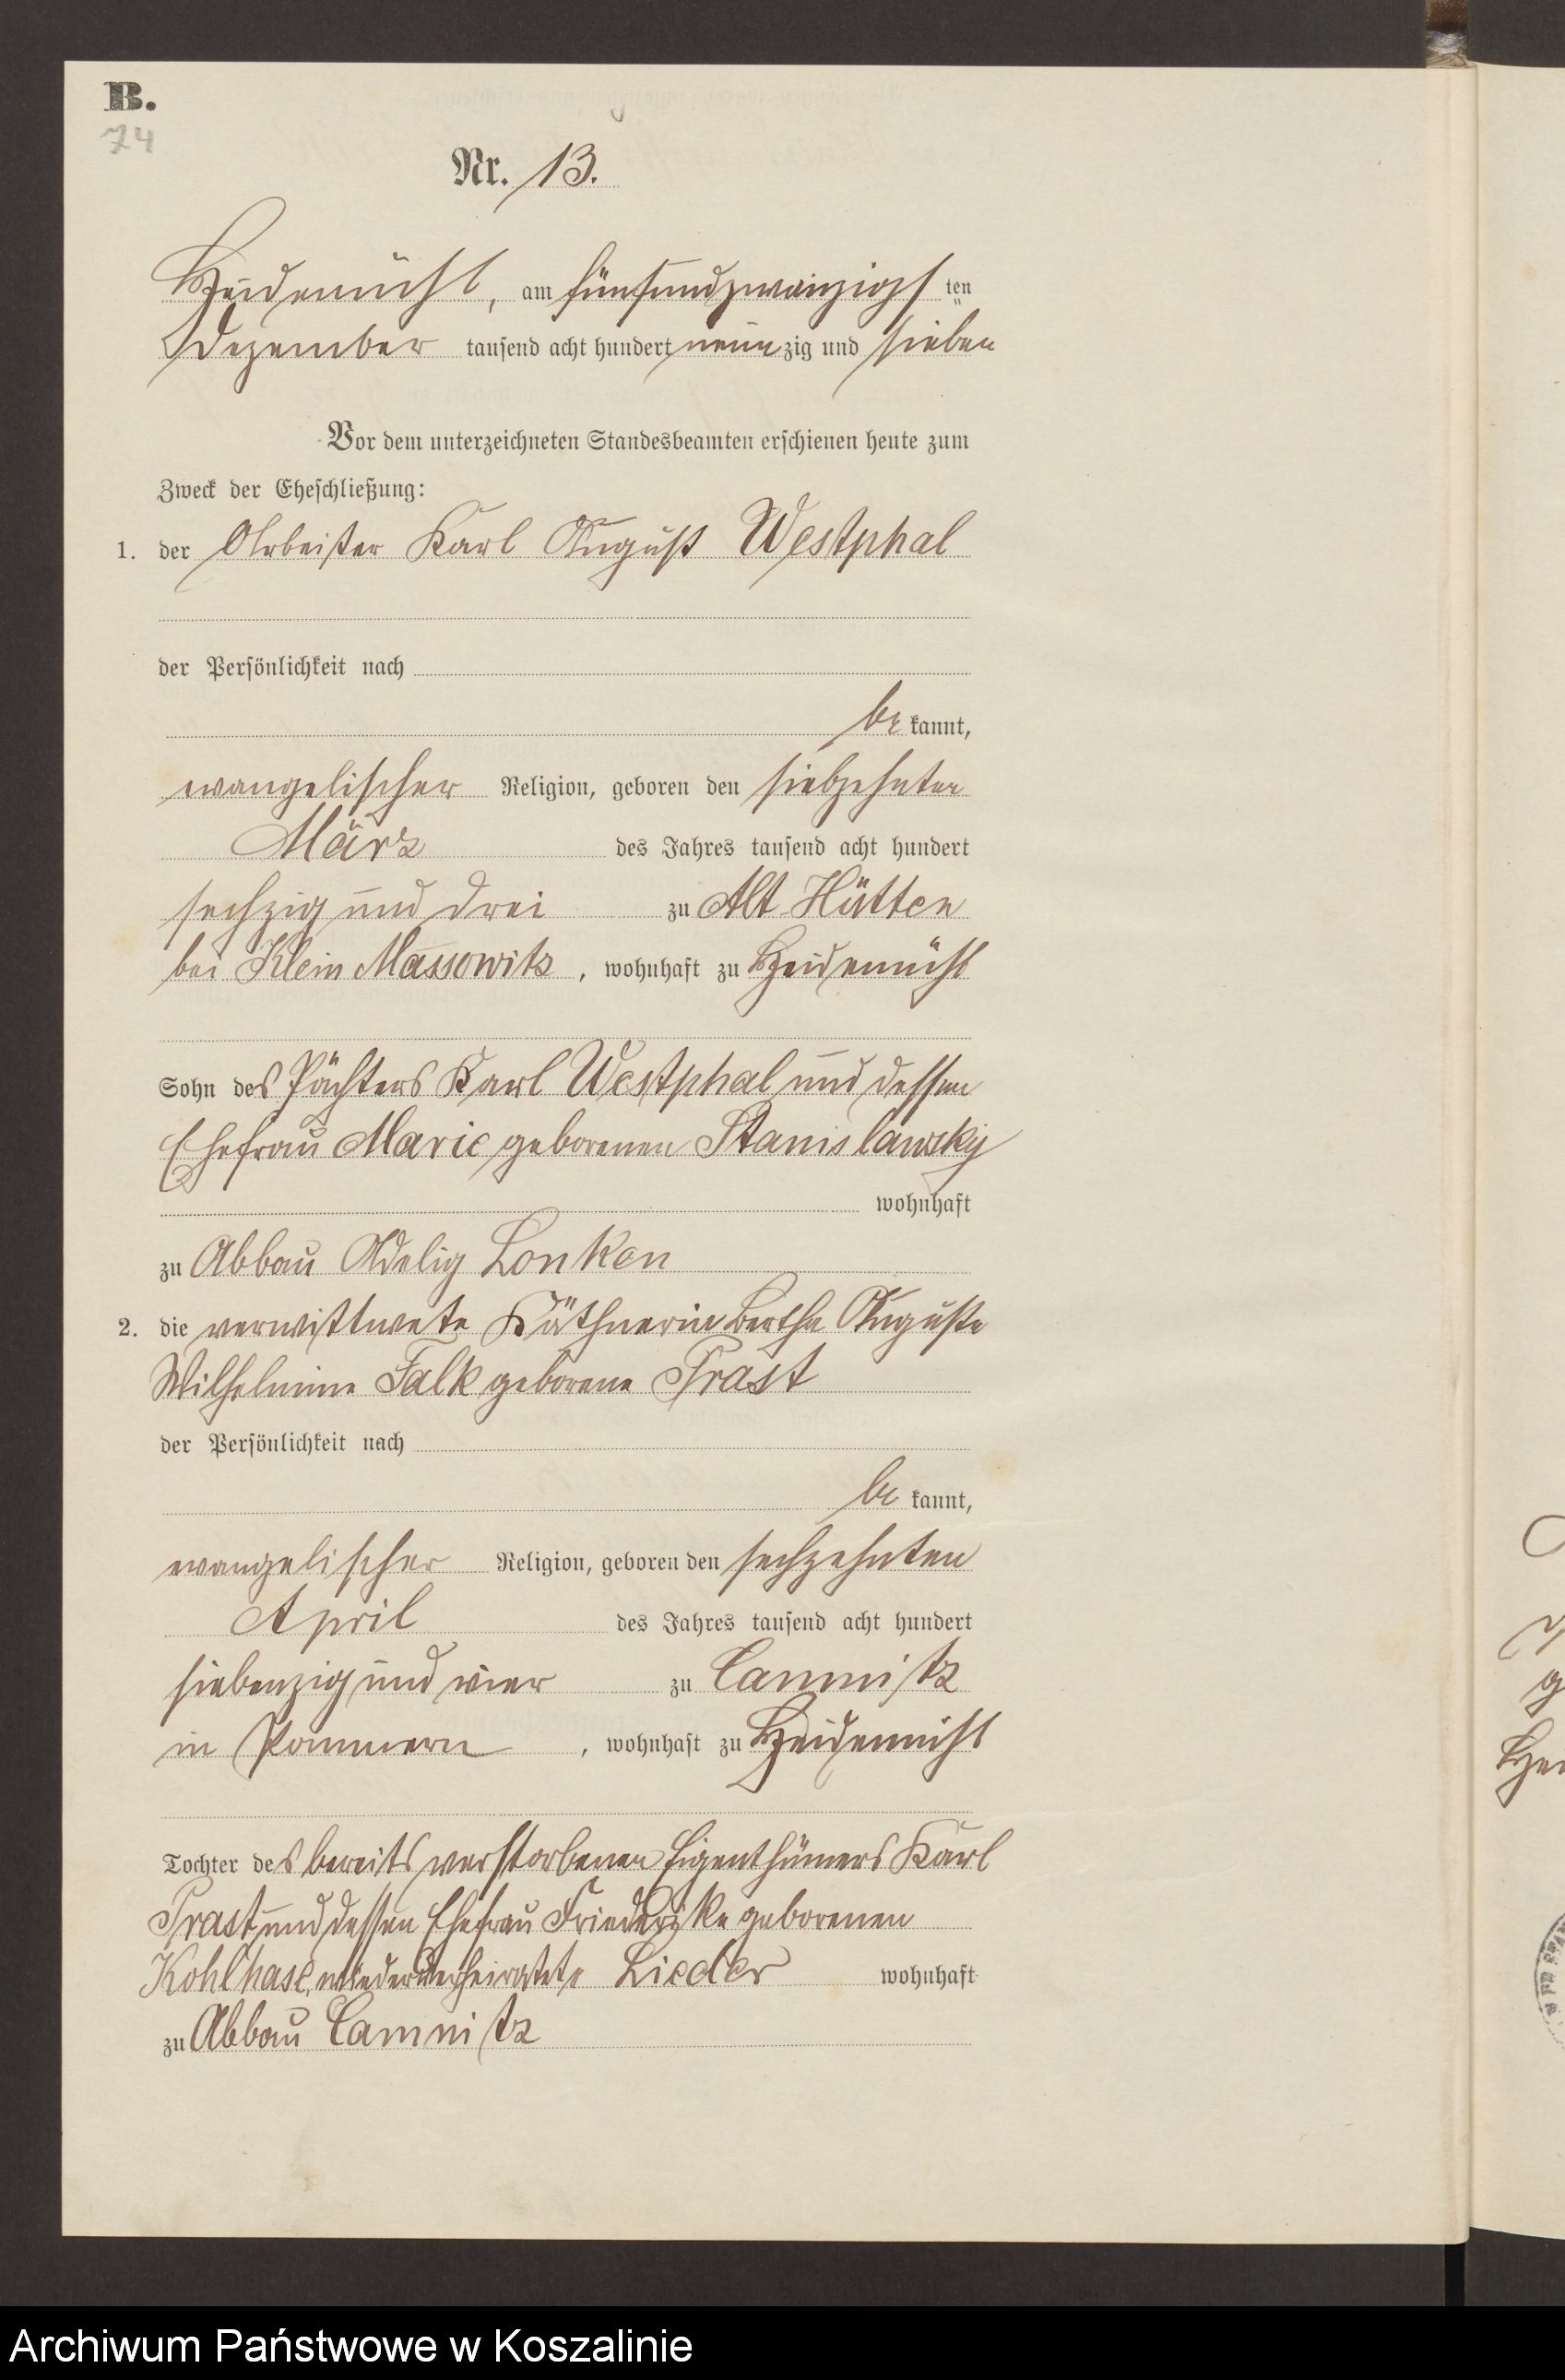 B.
74
Nr. 13.
Heidemühl, am fünfundzwanzigsten
Dezember tausend acht hundert neunzig und sieben
Vor dem unterzeichneten Standesbeamten erschienen heute zum
Zweck der Eheschließung:
1. der Arbeiter Karl August Westphal
der Persönlichkeit nach
bekannt,
evangelischer Religion, geboren den siebzehnten
März des Jahres tausend acht hundert
sechzig und drei zu Alt Hütten
bei Klein Massowitz, wohnhaft zu Heidemühl
Sohn des Pächters Karl Westphal und dessen
Ehefrau Marie geborenen Stanislawsky
wohnhaft
zu Abbau Adelig Lonken
2. die verwittwete Käthnerin Bertha Auguste
Wilhelmine Falk geborene Prast
der Persönlichkeit nach
bekannt,
evangelischer Religion, geboren den sechzehnten
April des Jahres tausend acht hundert
siebenzig und vier zu Camnitz
in Pommern, wohnhaft zu Heidemühl
Tochter des bereits verstorbenen Eigenthümers Karl
Prast und dessen Ehefrau Friederike geborenen
Kohlhase, wiederverheiratete Lieder wohnhaft
zu Abbau Camnitz
Archiwum Państwowe w Koszalinie